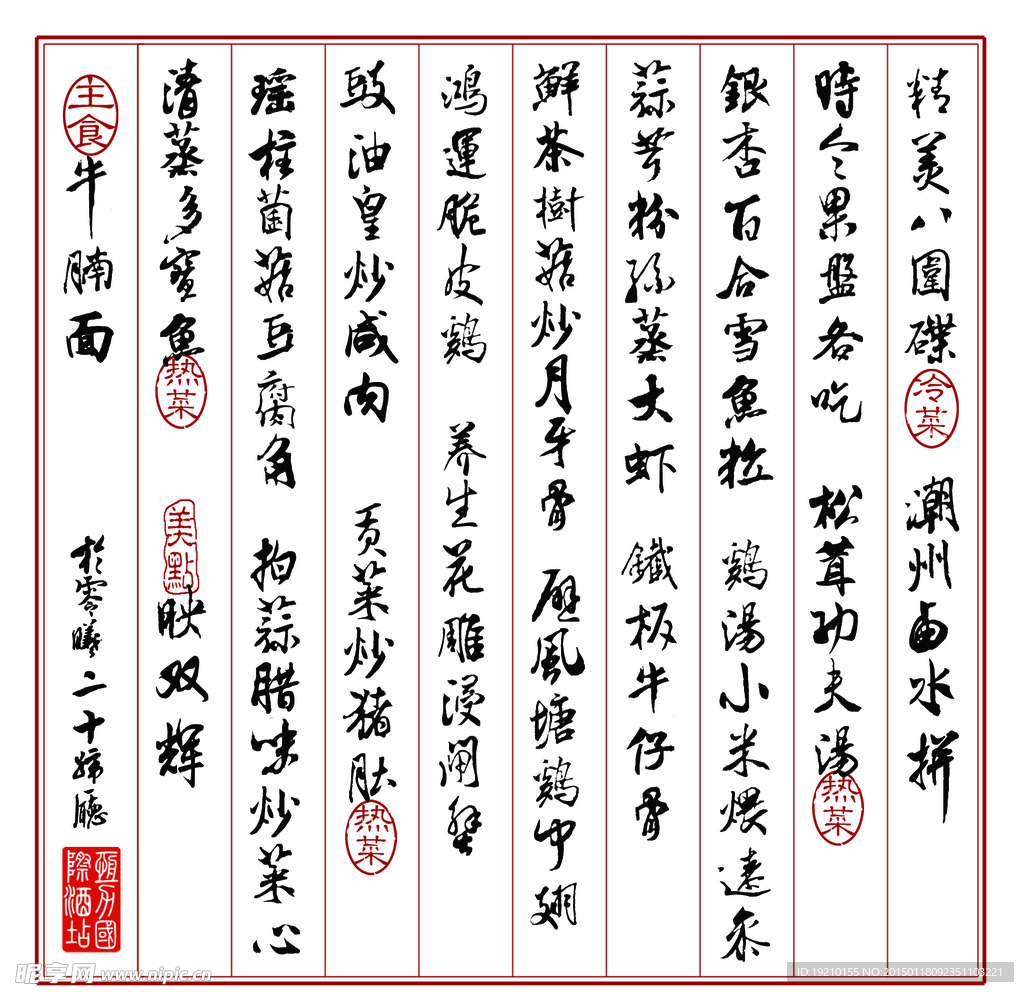 精美八圍碟 冷菜 潮州卤水拼
時令果盤各吃 松茸功夫湯 热菜
銀杏百合雪魚粒 鷄湯小米煨遼参
蒜茸粉絲蒸大虾 鐵板牛仔骨
鮮茶樹菇炒月牙骨 避風塘鷄中翅
鴻運脆皮鷄 养生花雕浸閘蟹
豉油皇炒咸肉 贡菜炒猪肚 热菜
瑶柱菌菇豆腐角 拍蒜腊味炒菜心
清蒸多寳魚 热菜 美點 映双辉
主食 牛腩面 於零曦二十號廳
國際酒
昵享网 www.nipic.cn
ID:19210155 NO:20150118092351103221